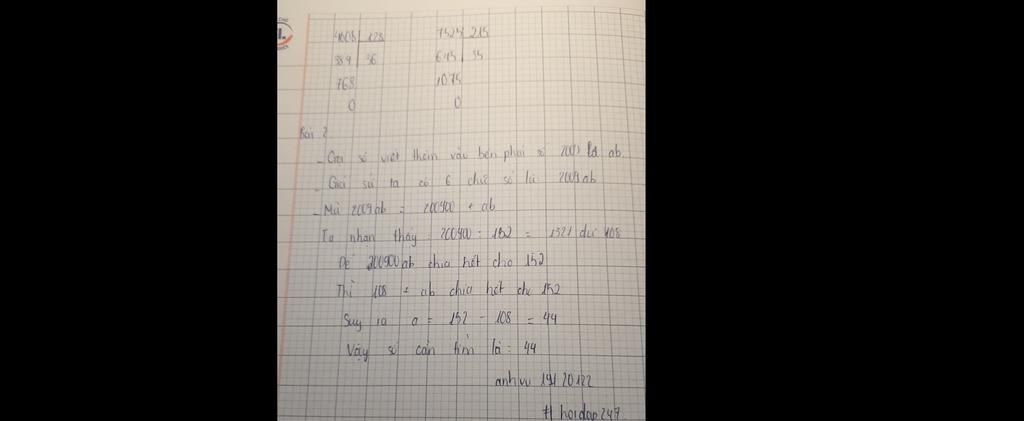 4608 128 7525 215
384 36 645 35
768 1075
0 0
Bài 2
- Gọi số viết thêm vào bên phải số 2009 là ab.
- Giả sử ta có 6 chữ số là 2009ab
- Mà 2009ab = 200900 + ab
Ta nhận thấy: 200900 : 152 = 1321 dư 108
Để 200900ab chia hết cho 152
Thì 108 + ab chia hết cho 152
Suy ra a = 152 - 108 = 44
Vậy số cần tìm là: 44
anhvu
# hoidap247